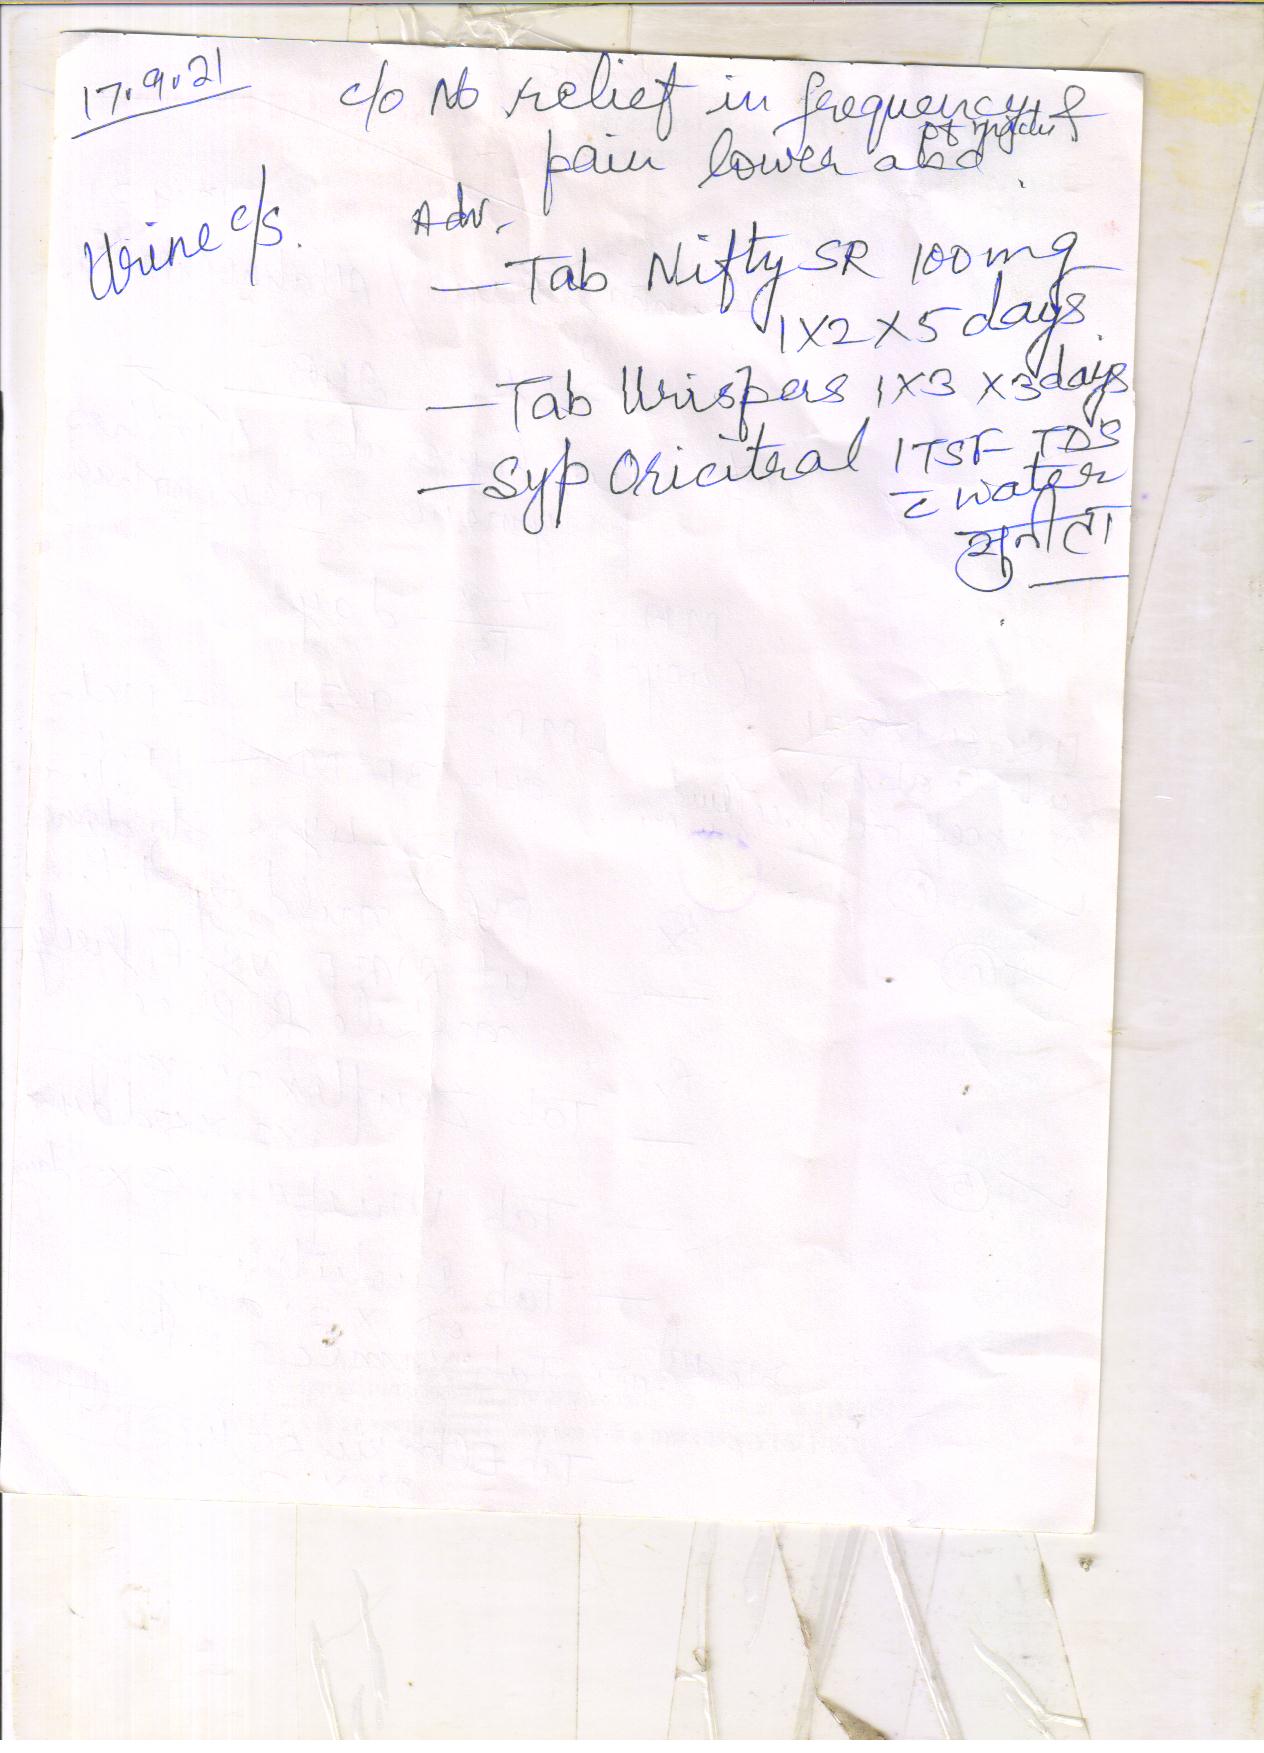 17.9.21
c/o No relief in frequency &
of mictu
pain lower abd.
Urine c/s.
Adv.
- Tab Nifty SR 100 mg
1 x 2 x 5 days
- Tab Urispas 1 x 3 x 3 days
- Syp Oricitral 1 TSF TDS
c water
सुनीता